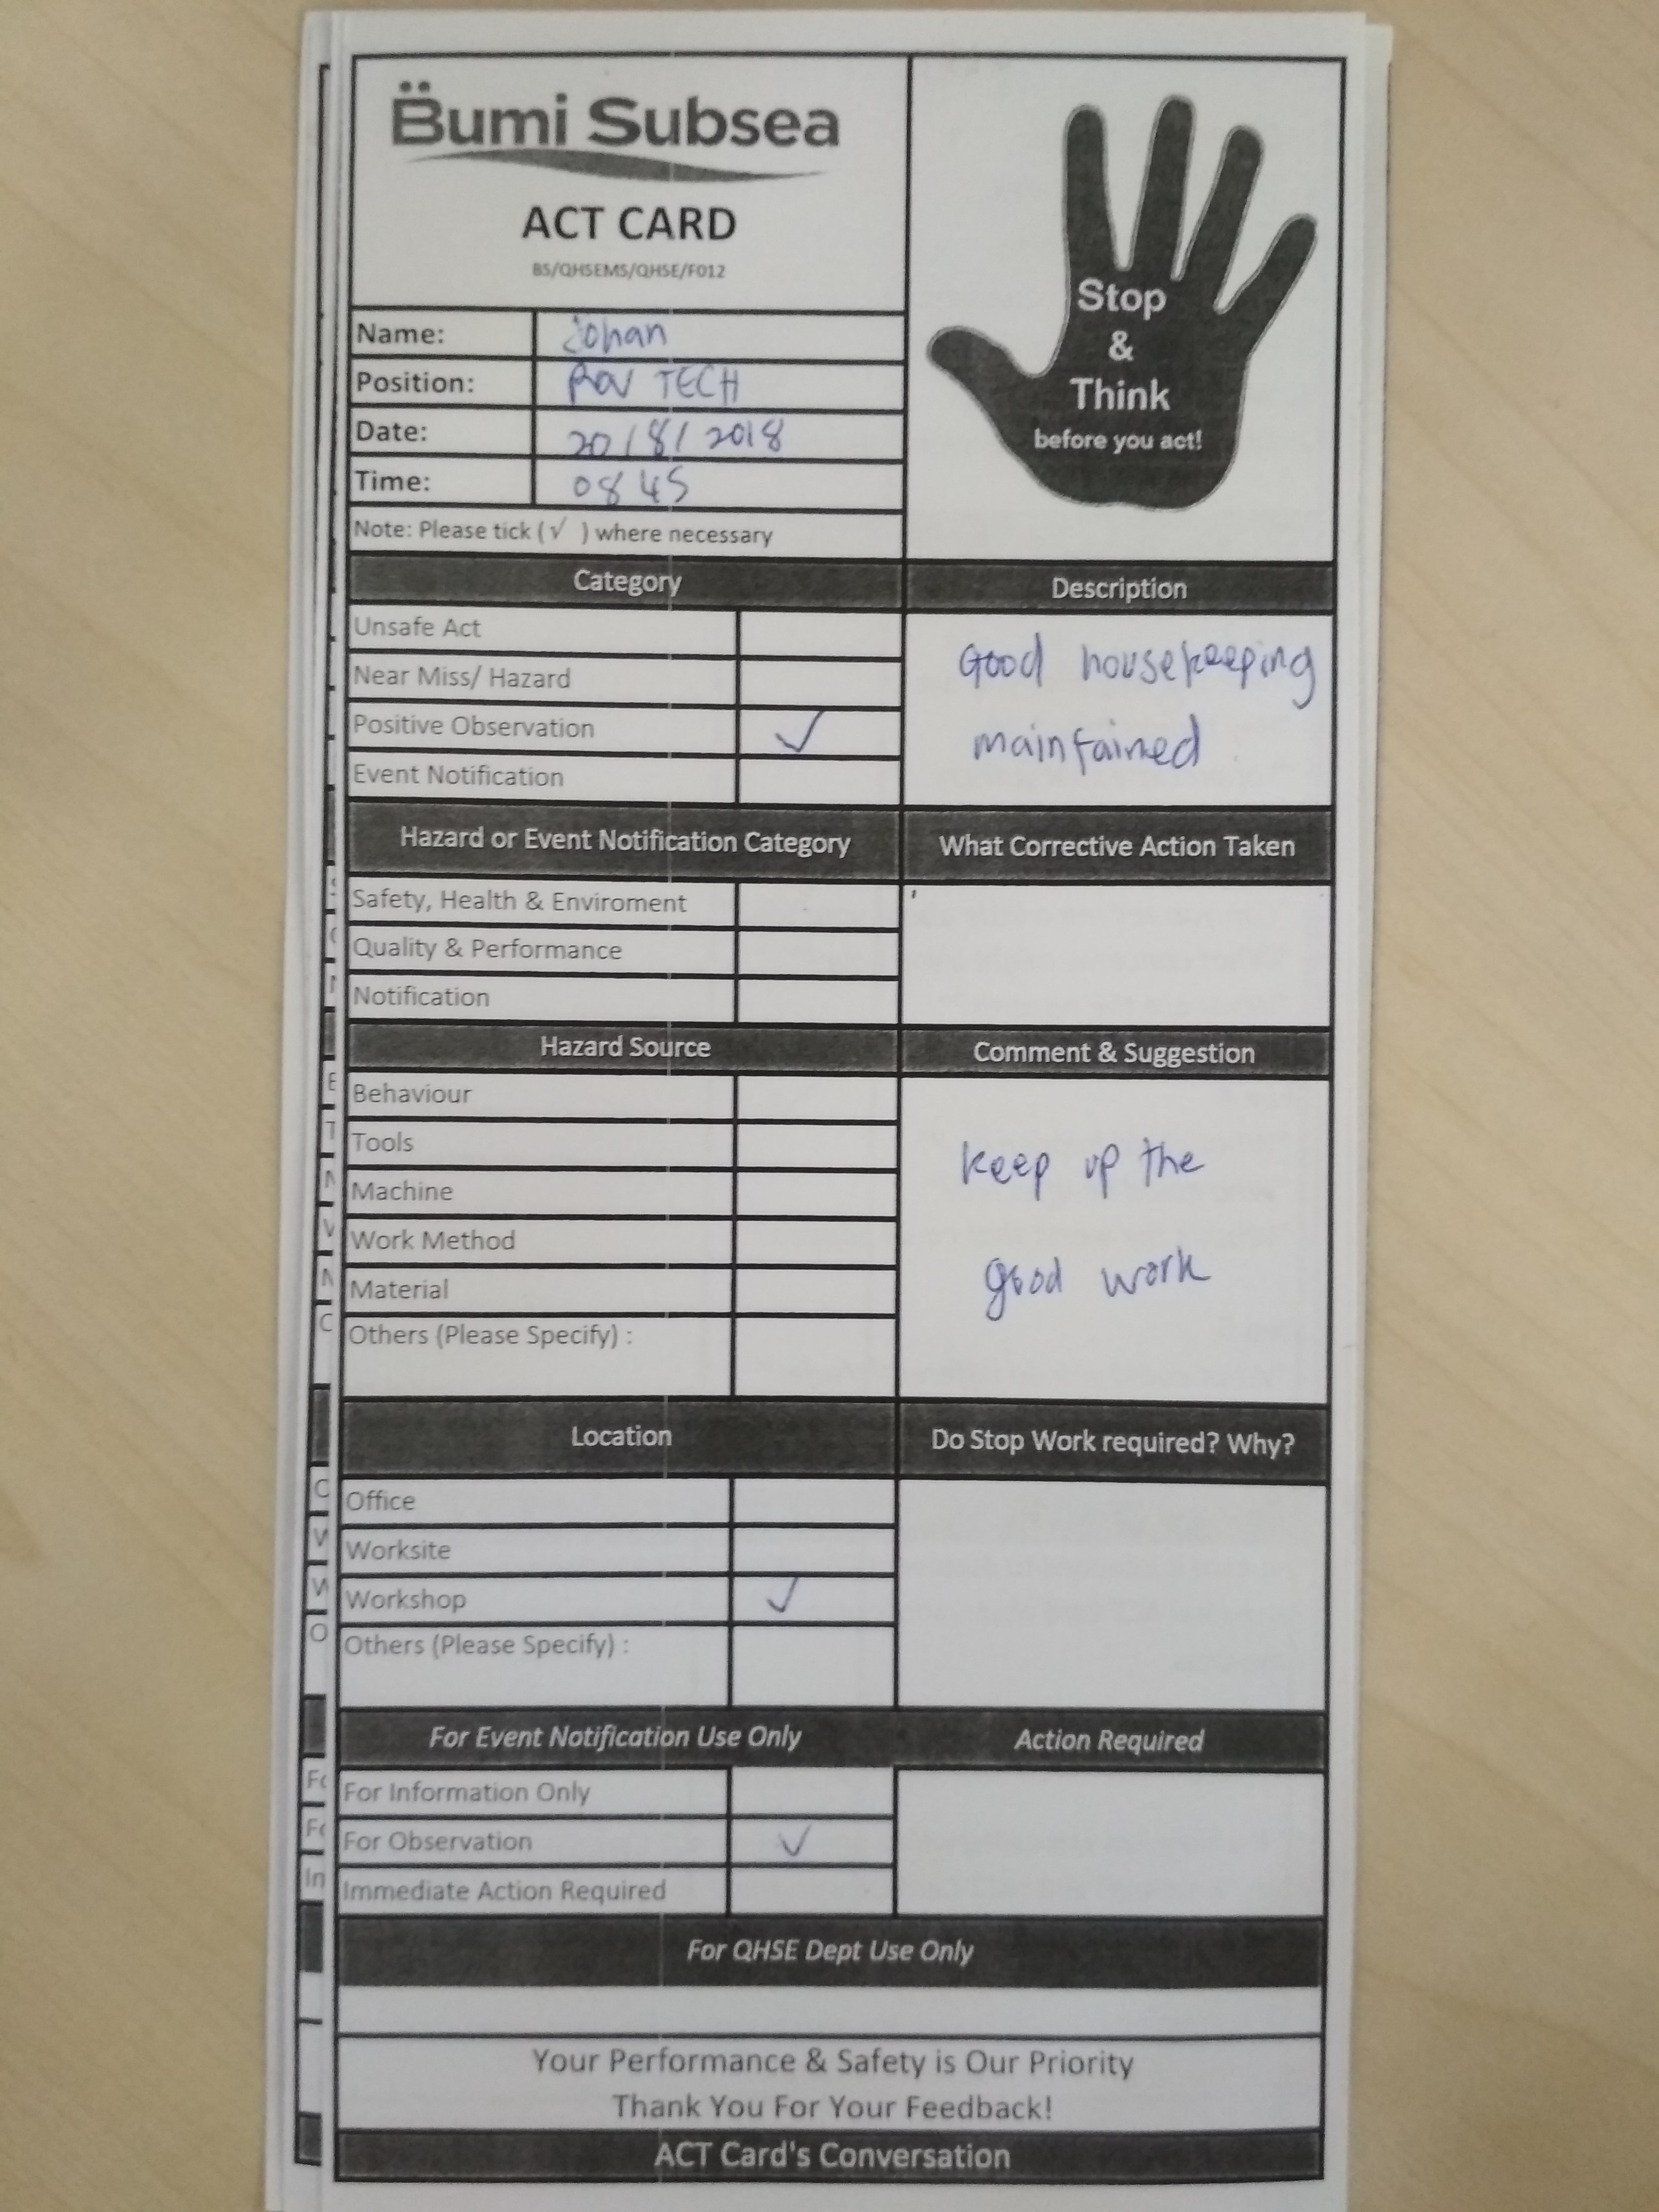 Bumi Subsea
ACT CARD
BS/QHSEMS/QHSE/F012
Stop
&
Think
before you act!
Name: Johan
Position: ROV TECH
Date: 20/8/2018
Time: 0845
Note: Please tick (√ ) where necessary
Category
Unsafe Act
Near Miss/ Hazard
Positive Observation ✓
Event Notification
Description
Good housekeeping
maintained
Hazard or Event Notification Category
Safety, Health & Enviroment
Quality & Performance
Notification
What Corrective Action Taken
Hazard Source
Behaviour
Tools
Machine
Work Method
Material
Others (Please Specify) :
Comment & Suggestion
keep up the
good work
Location
Office
Worksite
Workshop ✓
Others (Please Specify) :
Do Stop Work required? Why?
For Event Notification Use Only
For Information Only
For Observation ✓
Immediate Action Required
Action Required
For QHSE Dept Use Only
Your Performance & Safety is Our Priority
Thank You For Your Feedback!
ACT Card's Conversation